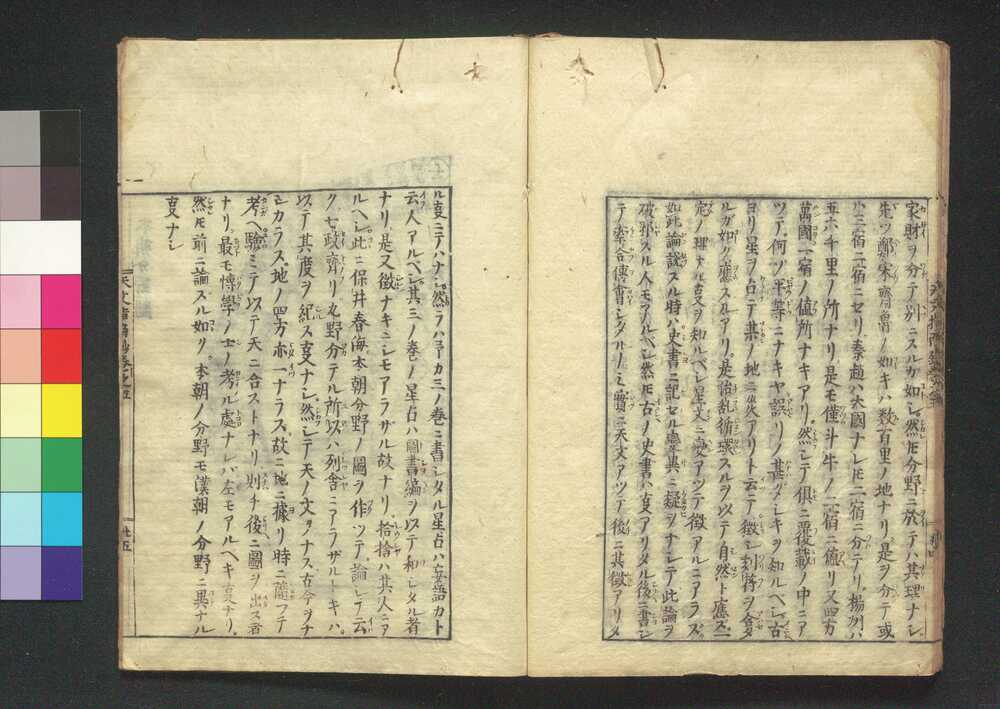 家財ヲ分テ別ニスルカ如シ然𪜈分野ニ於テハ其理ナシ
先ツ鄭宋齊魯ノ如キハ数百里ノ地ナリ是ヲ分テ或
ハ三宿二宿ニセリ秦趙ハ大國ナレ𪜈二宿ニ分テリ揚州ハ
五六千里ノ所ナリ是モ僅斗牛ノ二宿ニ値リ又四方
萬國一宿ノ値所ナキアリ然シテ俱ニ覆載ノ中ニア
ツテ何ソ平等ニナキヤ誤リノ甚タシキヲ知ルヘシ古
ヨリ星ヲ占テ某ノ地ニ災アリト云テ徴シ刻符ヲ合タ
ルガ如ク應スルアリ是治乱循環スルヲ以テ自然ト應ズ一
定ノ理ナル叓ヲ知ルベシ星文ニ変アツテ徴アルニアラズ
如此論説スル時ハ史書ニ記セル善典ニ疑ヲナシテ此論ヲ
破邪スル人モアルベシ然𪜈古ノ史書ハ叓アリタル後ニ書シ
テ牽合傳會シタルノミ實ニ天文アツテ後ニ其徴アリタ
ル叓ニテハナシ然ラハ予カ三ノ巻ニ書シタル星占ハ妄語カト
云人アルベシ其三ノ巻ノ星占ハ圖書編ヲ以テ和シタル者
ナリ是又徴ナキニシモアラザル故ナリ拾捨ハ其人ニア
ルヘシ此ニ保井春海本朝分野ノ圖ヲ作ツテ論シテ云
ク七政齊リ九野分テル所以ハ列舎ニアラザルトキハ
以テ其度ヲ紀ス叓ナシ然シテ天ノ文ヲナス古今ヲナ
シカラス地ノ四方亦一ナラス故ニ地ニ據リ時ニ随フテ
考ヘ驗ミテ以テ天ニ合ストナリ則チ後ニ圖ヲ出ス者
ナリ最モ博學ノ士ノ考ル處ナレバ左モアルヘキ叓ナリ
然𪜈前ニ論スル如ク本朝ノ分野モ漢朝ノ分野ニ異ナル
叓ナシ
天文書
巻之五
廿五